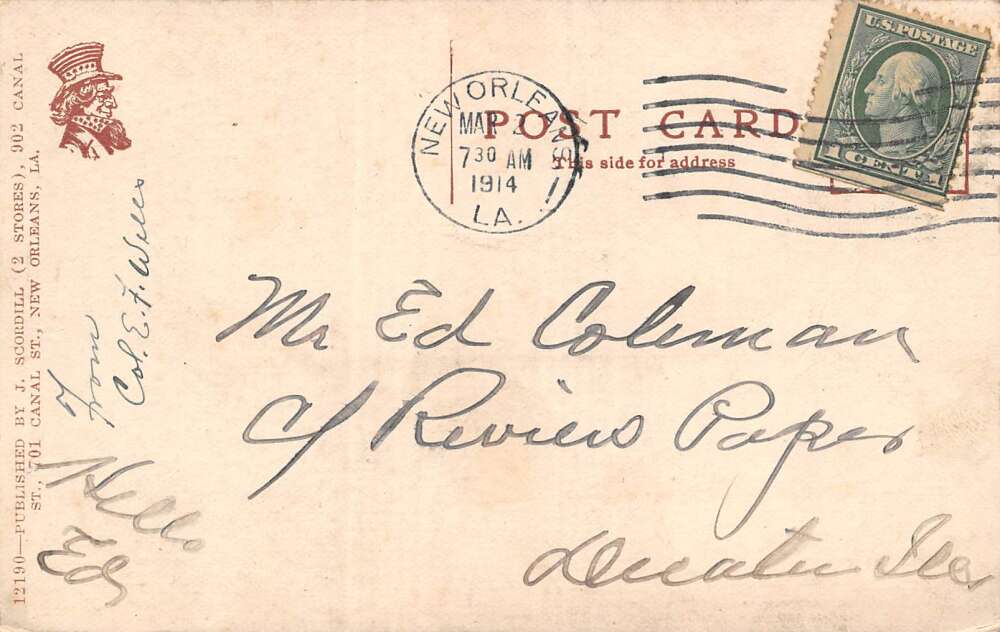 12190—PUBLISHED BY J. SCORDILL (2 STORES), 902 CANAL
ST., 701 CANAL ST., NEW ORLEANS, LA.
POST CARD
This side for address
NEW ORLEANS
MAR 2
7 30 AM
1914
LA.
U.S. POSTAGE
1 CENT 1
Mr Ed Coleman
c/ Review Paper
Decatur Ills
From
Col. E. F. Wells
Hello
Ed